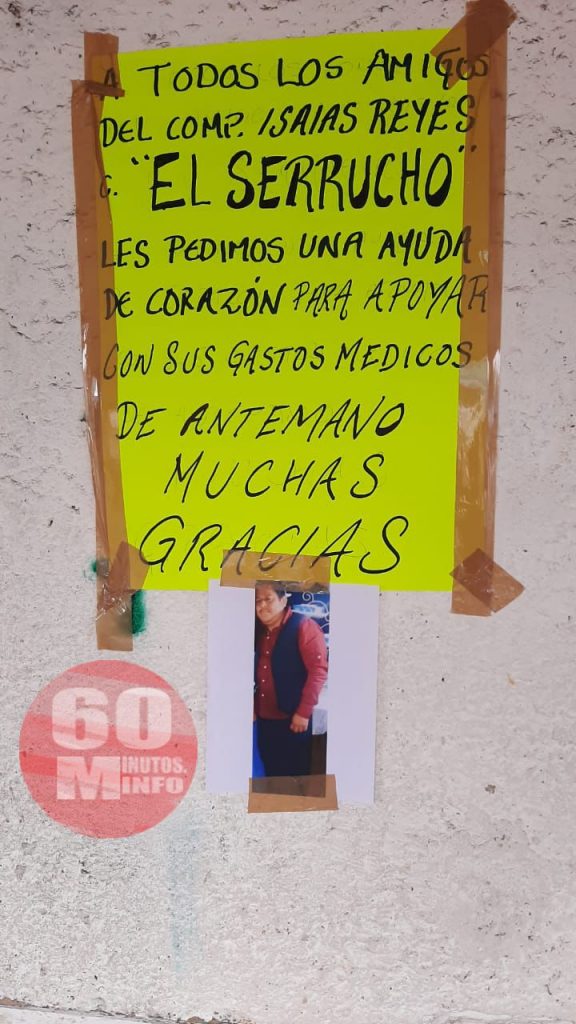 A TODOS LOS AMIGOS
DEL COMP. ISAIAS REYES
C. "EL SERRUCHO"
LES PEDIMOS UNA AYUDA
DE CORAZÓN PARA APOYAR
CON SUS GASTOS MEDICOS
DE ANTEMANO
MUCHAS
GRACIAS
60
MINUTOS.
INFO